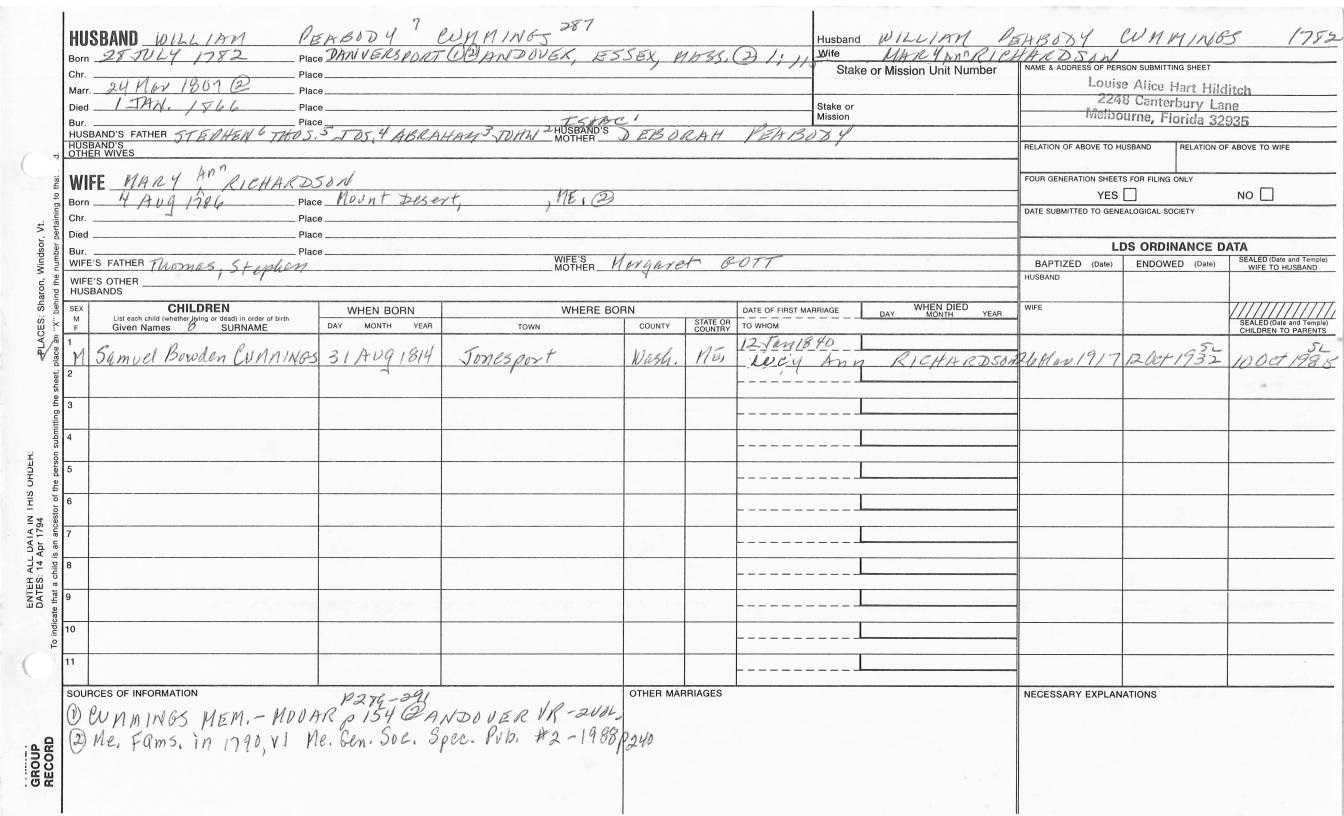 HUSBAND WILLIAM PEABODY 7 CUMMINGS 287
Born 28 JULY 1782 Place DANVERSPORT (1)(2) ANDOVER, ESSEX, MASS. (2) 1:11
Chr. Place
Marr. 24 Nov 1807 (2) Place
Died 1 JAN. 1866 Place
Bur. Place
HUSBAND'S FATHER STEPHEN 6 THOS. 5 JOS. 4 ABRAHAM 3 JOHN 2 ISAAC 1 HUSBAND'S MOTHER DEBORAH PEABODY
HUSBAND'S OTHER WIVES
WIFE MARY Ann RICHARDSON
Born 4 Aug 1786 Place Mount Desert, , ME. (2)
Chr. Place
Died Place
Bur. Place
WIFE'S FATHER Thomas, Stephen WIFE'S MOTHER Margaret GOTT
WIFE'S OTHER HUSBANDS
Husband WILLIAM PEABODY CUMMINGS 1782
Wife MARY Ann RICHARDSON
Stake or Mission Unit Number
Stake or Mission
NAME & ADDRESS OF PERSON SUBMITTING SHEET
Louise Alice Hart Hilditch
2248 Canterbury Lane
Melbourne, Florida 32935
RELATION OF ABOVE TO HUSBAND RELATION OF ABOVE TO WIFE
FOUR GENERATION SHEETS FOR FILING ONLY
YES NO
DATE SUBMITTED TO GENEALOGICAL SOCIETY
LDS ORDINANCE DATA
BAPTIZED (Date) ENDOWED (Date) SEALED (Date and Temple) WIFE TO HUSBAND
HUSBAND
WIFE
SEALED (Date and Temple) CHILDREN TO PARENTS
SEX M F
CHILDREN
List each child (whether living or dead) in order of birth
Given Names SURNAME
WHEN BORN
DAY MONTH YEAR
WHERE BORN
TOWN COUNTY STATE OR COUNTRY
DATE OF FIRST MARRIAGE
TO WHOM
WHEN DIED
DAY MONTH YEAR
1 M Samuel Bowden CUMMINGS 31 AUG 1814 Jonesport Wash. Me. 12 Jan 1840 Lucy Ann RICHARDSON 26 Mar 1917 12 Oct 1932 SL 10 Oct 1985 SL
2
3
4
5
6
7
8
9
10
11
SOURCES OF INFORMATION
P276-291
(1) CUMMINGS MEM. - MOOAR p 154 (2) ANDOVER VR - 2VOL.
(2) Me. Fams. in 1790, v1 Me. Gen. Soc. Spec. Pub. #2 - 1988 p240
OTHER MARRIAGES
NECESSARY EXPLANATIONS
ENTER ALL DATA IN THIS ORDER:
DATES: 14 Apr 1794 PLACES: Sharon, Windsor, Vt.
To indicate that a child is an ancestor of the person submitting the sheet, place an "X" behind the number pertaining to that
GROUP RECORD